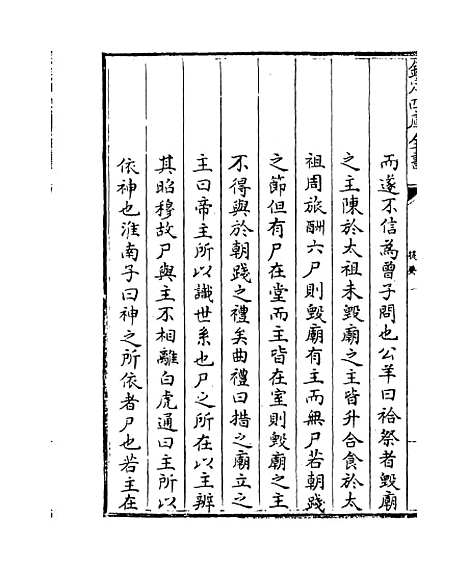 欽定四庫全書
提要
而遂不信為曾子問也公羊曰祫祭者毀廟
之主陳於太祖未毀廟之主皆升合食於太
祖周旅酬六尸則毀廟有主而無尸若朝踐
之節但有尸在堂而主皆在室則毀廟之主
不得與於朝踐之禮矣曲禮曰措之廟立之
主曰帝主所以識世系也尸之所在以主辨
其昭穆故尸與主不相離白虎通曰主所以
依神也淮南子曰神之所依者尸也若主在